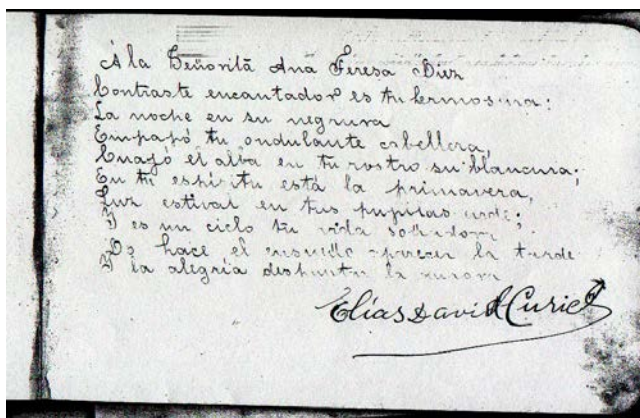 Á la Señorita Ana Teresa Diez
Contraste encantador es tu hermosura:
La noche en su negrura
Empapó tu ondulante cabellera,
Cuajó el alba en tu rostro su blancura;
En tu espíritu está la primavera,
Luz estival en tus pupilas arde;
Y es un cielo tu vida soñadora
Do hace el ensueño aparecer la tarde
Y la alegría despunta la aurora
Elías David Curiel